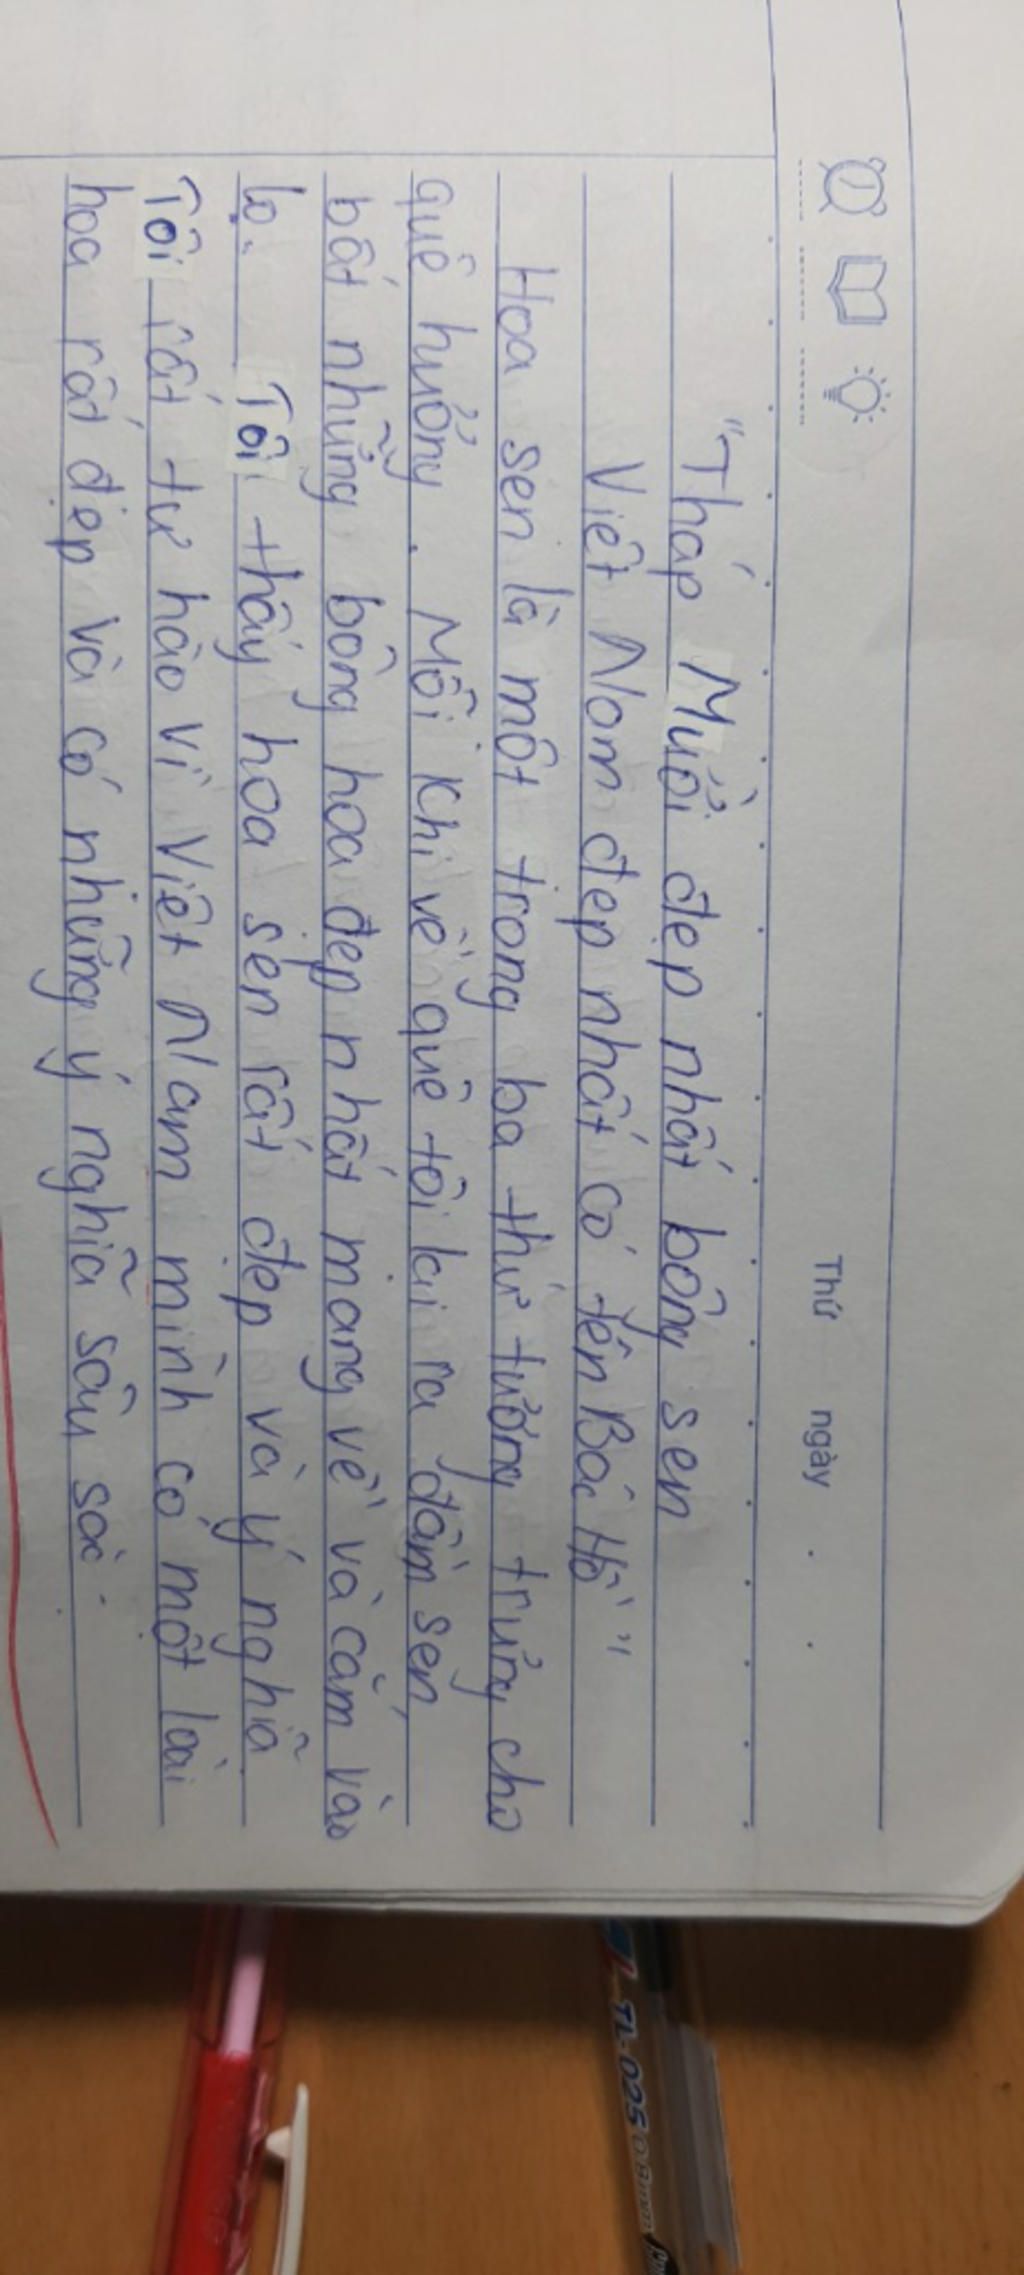 Thứ ngày . .
"Tháp Mười đẹp nhất bông sen
Việt Nam đẹp nhất có tên Bác Hồ"
Hoa sen là một trong ba thứ tượng trưng cho
quê hương. Mỗi khi về quê tôi lại ra đầm sen,
bắt những bông hoa đẹp nhất mang về và cắm vào
lọ. Tôi thấy hoa sen rất đẹp và ý nghĩa
Tôi rất tự hào vì Việt Nam mình có một loài
hoa rất đẹp và có những ý nghĩa sâu sắc.
TL-025 0.8mm